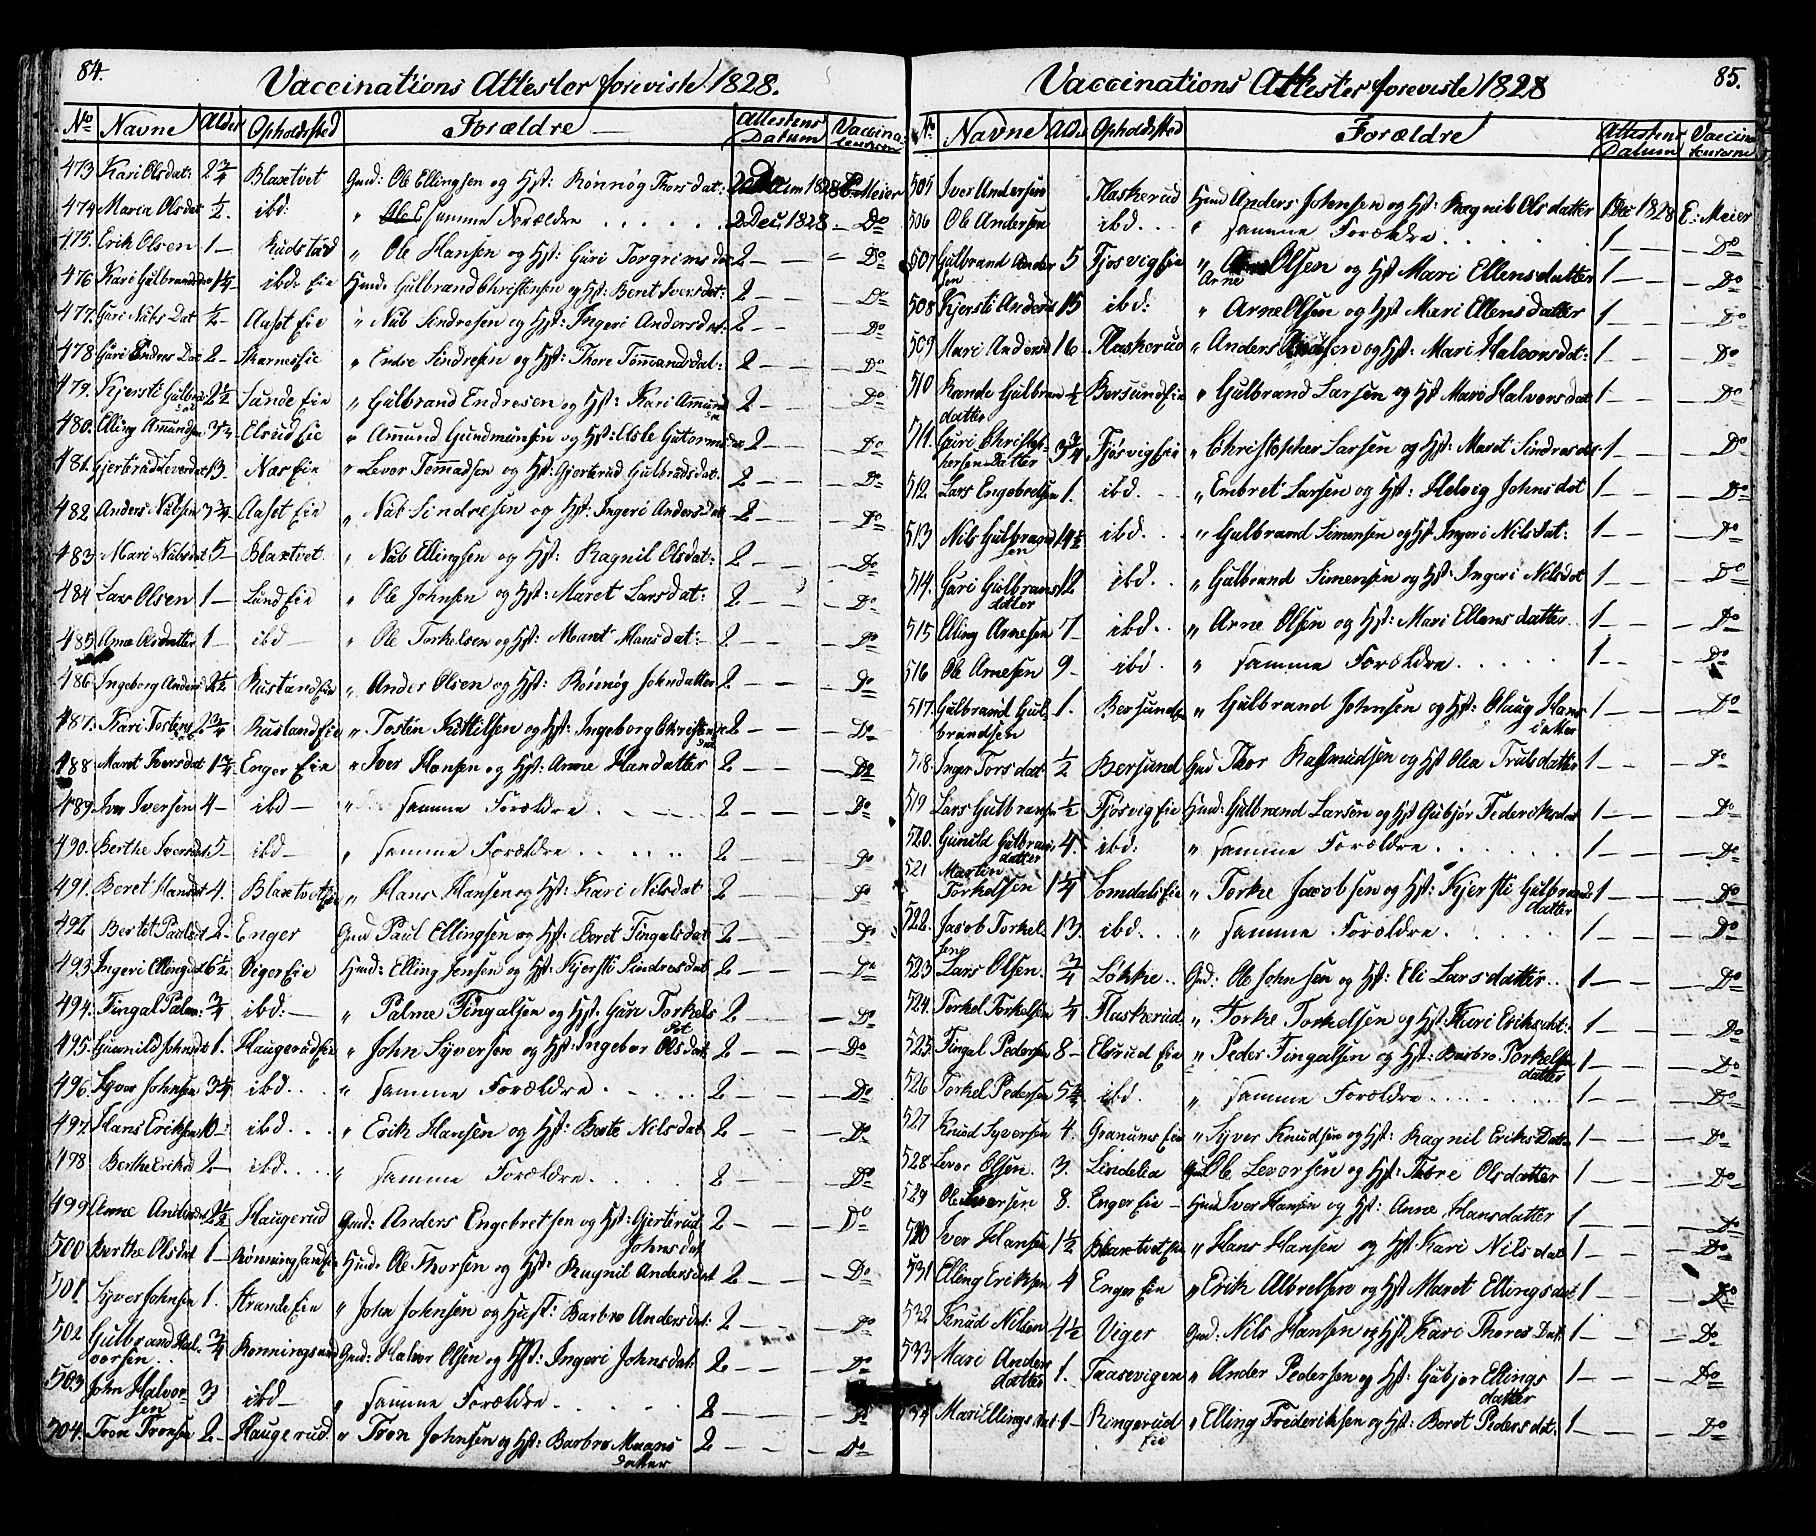 84.
Vaccinations Attester foreviste 1828.
No Navne Alder Opholdsted Forældre Attestens Datum Vaccinateurerne
473 Kari Olsdat: 2 3/4 Blaxtvet Gmd: Ole Ellingsen og Hst: Rønnøg Thorsdat: 1828 E. Meier
474 Maria Olsdat 1/2. ibd: " samme Forældre . . . . . . 2 Dec: 1828. — Do
475. Erik Olsen 1 — Rudstad " Ole Hansen og Hst: Guri Torgrimsdat 2 — — — Do
476 Kari Gulbrandsdat 1 1/4 ibd: Eie Hmd: Gulbrand Christensen og Hst: Beret Iversdat: 2 — — — Do
477. Guri Nubs Dat 1/2 — Aaset Eie " Nub Sindresen og Hst: Ingeri Andersdat: 2 — — Do
478 Guri Endres Dat 2 — Skarnes Eie " Endre Sindresen og Hst: Thore Tommasdat: 2 — — Do
479. Kjersti Gulbrandsdat 2 1/2 Sunde Eie " Gulbrand Endresen og Hst: Kari Amunds 2 — — Do
480. Elling Amundsen 3 1/4 Elsrud Eie " Amund Gundmunsen og Hst: Aslo Gutormsdat 2 — — Do
481. Gjertrud Levorsdat 13 Næs Eie " Levor Tommadsen og Hst: Gjertrud Gulbrandsdat: 2 — — Do
482 Anders Nubsen 3 3/4 Aaset Eie " Nub Sindresen og Hst: Ingeri Andersdat 2 — — Do
483 Mari Nubsdat 5 — Blaxtvet " Nub Ellingsen og Hst: Ragnil Olsdat: 2 — — Do
484 Lars Olsen 1 — Lund Eie " Ole Johnsen og Hst: Maret Larsdat: 2 — — Do
485 Anne Olsdatter 1 — ibd — " Ole Torkelsen og Hst: Marit Hansdat: 2 — — Do
486 Ingeborg Anders 2 1/2 Rustand Eie " Ander Olsen og Hst: Rønnøg Johndatter 2 — — Do
487. Kari Tostens 2 3/4 Rusland Eie " Tosten Kittilsen og Hst: Ingeborg Christens 2 — — Do
488 Maret Iversdat 1 3/4 Enger Eie " Iver Hansen og Hst: Anne Handatter 2 — — Do
489. Iver Iversen 4 — ibd — " samme Forældre . . . . 2 — — Do
490. Berthe Iversdat 5 ibd — " samme Forældre . . . . . 2 — — Do
491. Beret Hansdat 4. Blaxtvet Eie " Hans Hansen og Hst: Kari Nilsdat 2 — — Do
492 Bertet Paulsdat 2. Enger Gmd Paul Ellingsen og Hst: Beret Fingalsdat 2 — — Do
493. Ingeri Ellingsdat 6 1/2 Viger Eie Hmd: Elling Jensen og Hst: Kjersti Sindresdat 2 — — Do
494. Fingal Palm: 3/4 ibd: — " Palme Fingalsen og Hst: Guri Torkels Dat 2 — — Do
495. Gunnild Johnsdat 1. Haugerud Eie " John Syversen og Hst: Ingebor Olsdat 2 — — Do
496. Syver Johnsen 3 1/4 ibd . . . " samme Forældre . . . . 2 — — Do
497. Hans Eriksen 10 — ibd . . . " Erik Hansen og Hst: Berte Nilsdat 2 — — Do
498 Berthe Eriksd 2 — ibd . . . " samme Forældre . . . . 2 — — Do
499 Anne Andersdat 2 1/2 Haugerud Gmd: Anders Engebretsen og Hst: Gjertrud Johnsdat 2 — — Do
500 Berthe Olsdat 1 — Rønningsand Eie Hmd: Ole Thorsen og Hst: Ragnil Andersdat 2 — — Do
501 Syver Johnsen 1. Strande Eie " John Johnsen og Hust: Barbro Andersdat: 2 — — Do
502 Gulbrand Halvorsen . . 3/4 Rønningsand Gmd: Halvor Olsen og Hst: Ingeri Johnsdat: 2 — — Do
503 John Halvorsen 3 ibd — " samme Forældre . . . . . 2 — — Do
504. Tron Tronsen 2 — Haugerud " Tron Johnsen og Hst: Barbro Maans datter 2 — — Do
85.
Vaccinations Attester foreviste 1828
No Navne Alder Opholdsted Forældre Attestens Datum Vaccinateurerne
505 Iver Andersen Flaskerud Hmd Anders Johnsen og Hst: Ragnil Olsdatter 1 Dec 1828 E: Meier
506 Ole Andersen ibd. . . " samme Forældre . . . . . . 1 — — — Do
507 Gulbrand Andersen 5 Tjosvig Eie " Arne Olsen og Hst Mari Ellensdatter 1 — — — Do
508 Kjersti Andersd 15 ibd: " Arne Olsen og Hst Mari Ellensdatter 1 — — — Do
509 Mari Andersd 16 Flaskerud " Anders Knudsen og Hst: Mari Halvorsdat: 1 — — Do
510 Rande Gulbrandsdatter 1/2 Bersund Eie " Gulbrand Larsen og Hst Mari Halvorsdat 1 — — Do
511. Guri Christophersen Datter 3 3/4 Tjøsvig Eie " Christopher Larsen og Hst: Maret Sindresdat 1 — — Do
512. Lars Engebretsen 1. ibd. . . " Embret Larsen og Hst: Helvig Johnsdat 1 — — Do
513 Nils Gulbrandsen 14 1/2 ibd. . . " Gulbrand Simensen og Hst Ingeri Nilsdat: 1 — — Do
514. Guri Gulbransdatter 12 ibd. . " Gulbrand Simensen og Hst: Ingeri Nilsdat 1 — — Do
515 Elling Arnesen 7 — ibd. . " Arne Olsen og Hst: Mari Ellensdatter. 1 — — Do
516 Ole Arnesen 9 — ibd. " samme Forældre . . . . . 1 — — Do
517. Gulbrand Gulbrandsen 1. Bersund Eie " Gulbrand Johnsen og Hst: Olaug Hans datter 1 — — Do
518. Inger Torsdat 1/2 Bersund Gmd Thor Rasmudsen og Hst Olea Trulsdatter 1 — — Do
519 Lars Gulbransen 1/2 Tjosvig Eie Hmd: Gulbrand Larsen og Hst Gubjør Federiksdat 1 — — Do
520. Gunild Gulbransdatter 4. ibd: " samme Forældre . . . . . . 1 — — Do
521 Martin Torkelsen 1 1/4 Lomdals Eie " Torke Jacobsen og Hst: Kjersti Gulbrands datter 1 — — Do
522. Jacob Torkelsen 13. ibd. . . " samme Forældre . . . . . 1 — — Do
523 Lars Olsen. 3/4 Løkke . . Gmd: Ole Johnsen og Hst: Eli Larsdatter . . 1 — — Do
524. Torkel Torkelsen 1/4 Flaskerud " Torke Torkelsen og Hst Kari Eriksdat: 1 — — Do
525. Fingal Pedersen 8 — Elsrud Eie " Peder Fingalsen og Hst: Barbro Torkelsen datter 1 — — Do
526 Torkel Pedersen 5 3/4 ibd. " samme Forældre . . . . . . 1 — — Do
527 Knud Syversen 4. Granums Eie " Syver Knudsen og Hst: Ragnil Eriks Dat: 1 — — Do
528 Levor Olsen. 3. Lindelia Gmd Ole Levorsen og Hst: Thore Olsdatter 1 — — Do
529 Ole Iversen 8. Enger Eie — Hmd Iver Hansen og Hst: Anne Hansdatter 1 — — Do
530 Iver Hansen 1 1/2 Blaxtvet Eie " Hans Hansen og Hst Kari Nilsdat 1 — — Do
531 Elling Eriksen 4 Enger Eie " Erik Albretsen og Hst Maret Ellingsdat: 1 — — Do
532 Knud Nilsen 4 1/2 Viger Gmd: Nils Hansen og Hst Kari Thores Dat: 1 — — Do
533 Mari Anders datter 1. Taasevigen " Ander Pedersen og Hst: Gubjør Ellings datter 1 — — Do
34 Mari Ellings dat 1 — Ringerud Eie " Elling Frederiksen og Hst: Beret Pedersdat: 1 — — Do